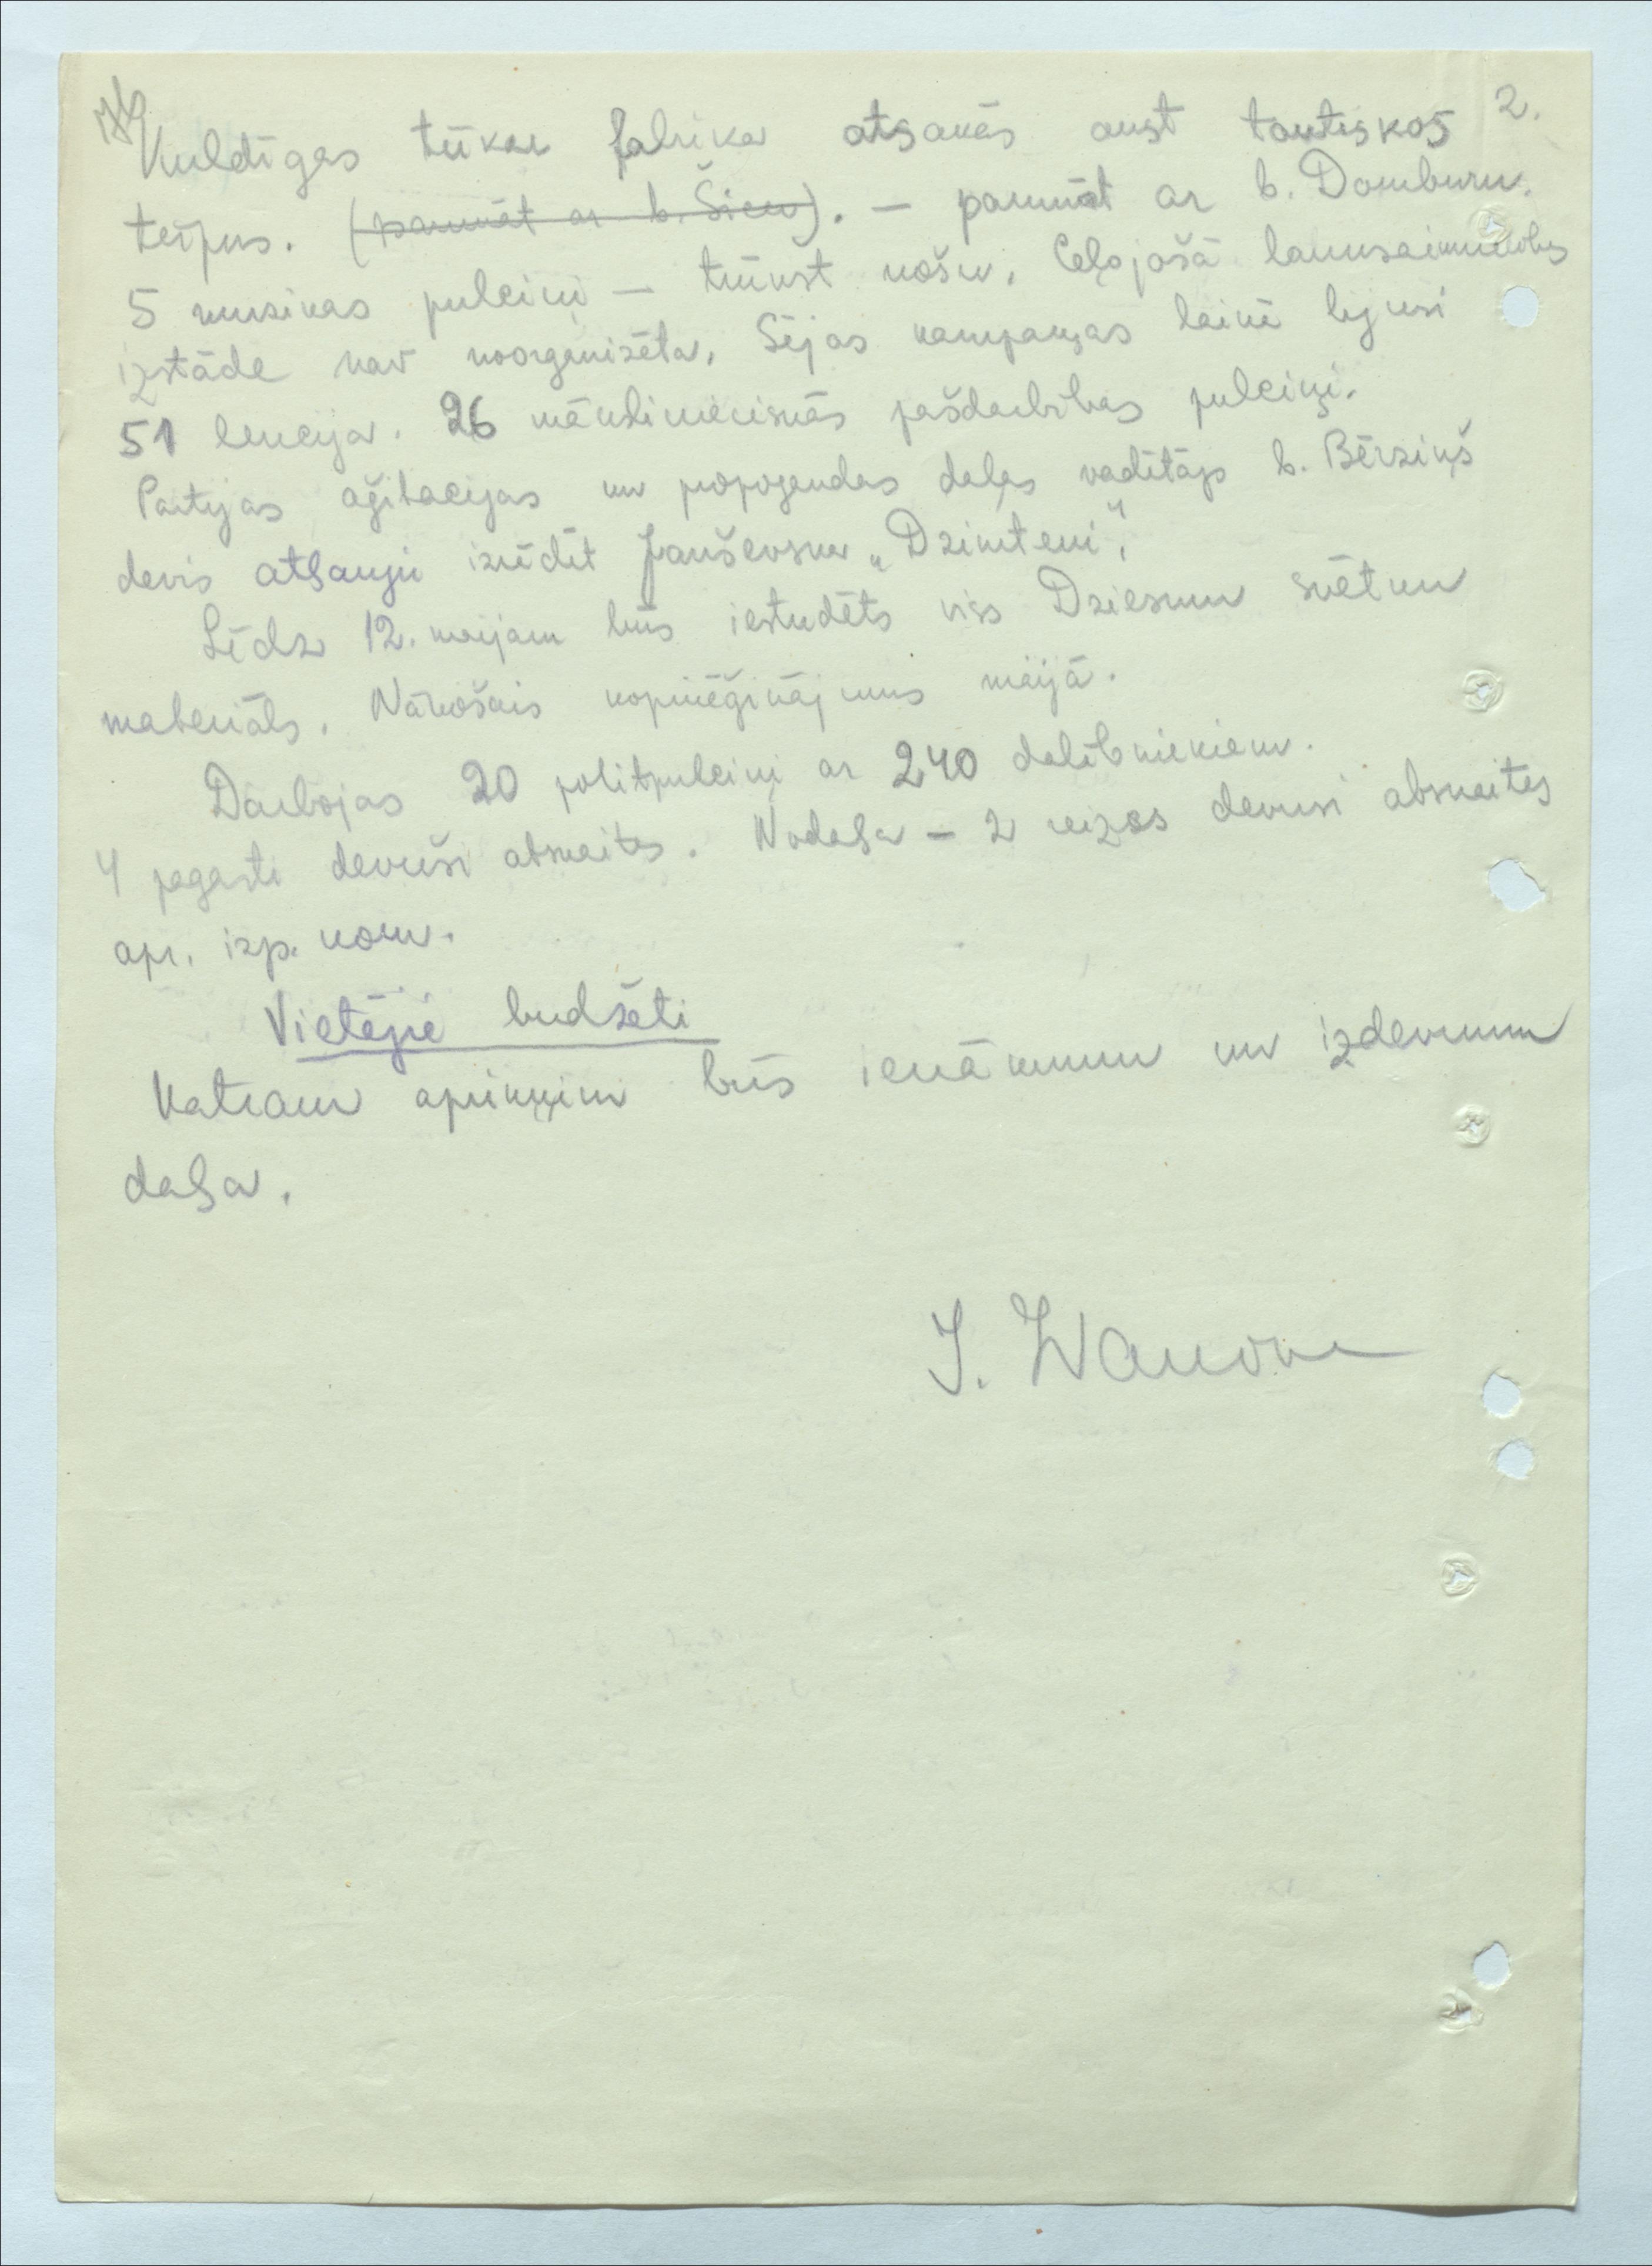 2.
Kuldīgas tūku fabrika atsakās aust tautiskos
tērpus. (parunāt ar b. Šicu). – parunāt ar b. Domburu.
5 muzikas pulciņi – trūkst nošu. Ceļojošā lauksaimniecības
izstāde nav noorganizēta. Sējas kampaņas laikā bijusi
51 lekcija. 26 mākslinieciskās pašdarbības pulciņi.
Partijas aģitacijas un propogandas daļas vadītājs b. Bērziņš
devis atļauju izrādīt Janševsku „Dzimteni".
Līdz 12. maijam būs iestudēts viss Dziesmu svētku
materiāls. Nākošais kopmēģinājums maijā.
Darbojas 20 politpulciņi ar 240 dalībniekiem.
4 pagasti devuši atskaites. Nodaļa – 2 reizes devusi atskaites
apr. izp. kom.
Vietējie budžeti
Katram apriņķim būs ienākumu un izdevumu
daļa.